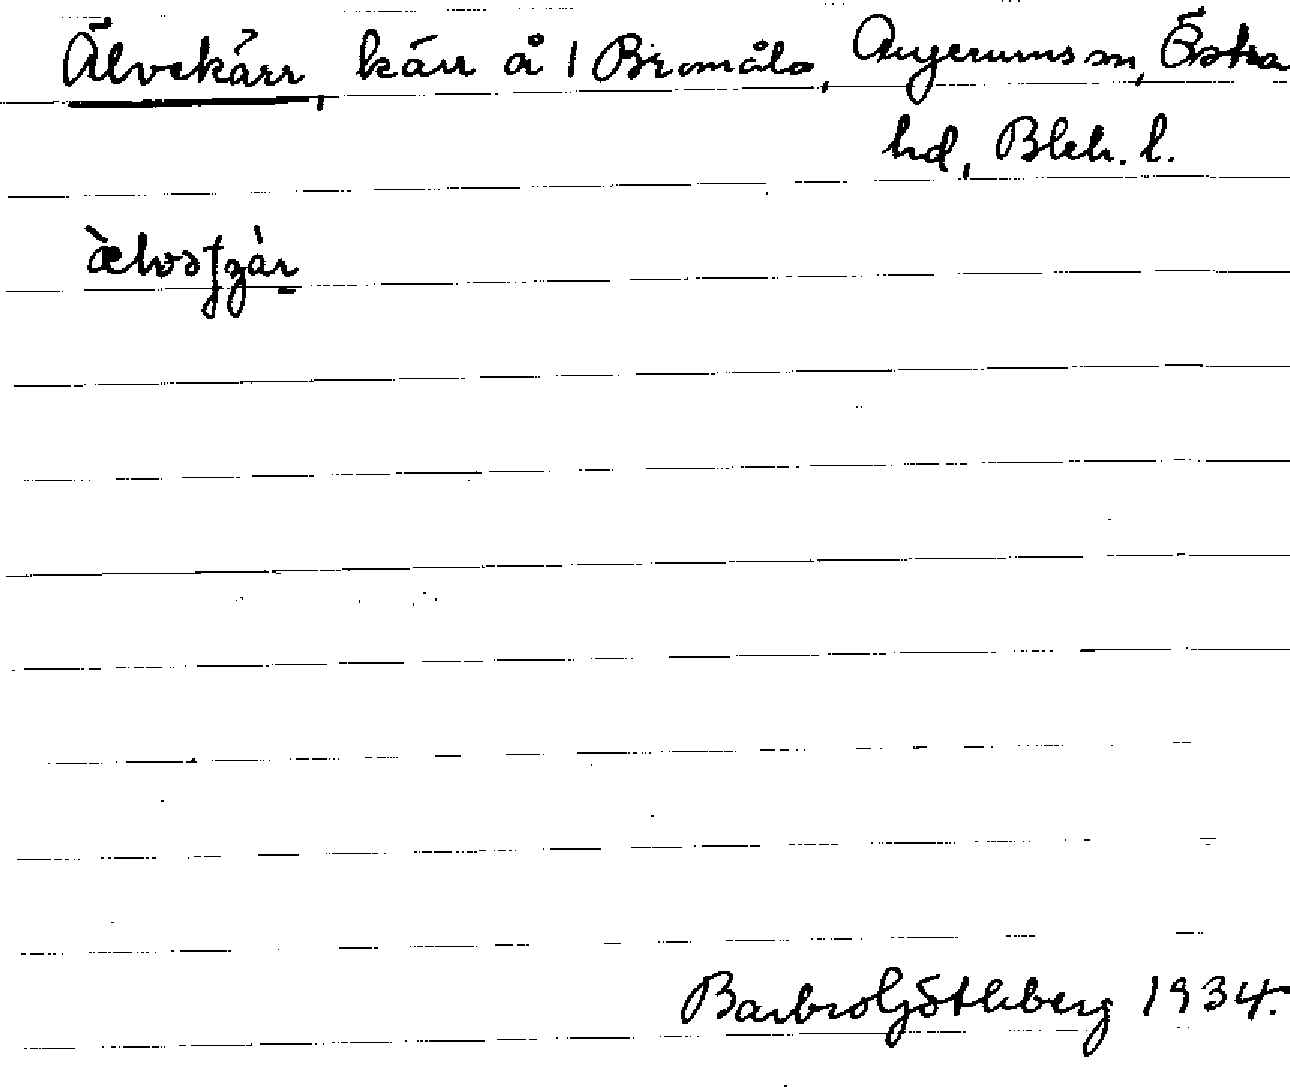 Älvekärr, kärr å 1 Bromåla, Augerums sn, Östra
hd, Blek. l.
Barbro Götleberg 1934.